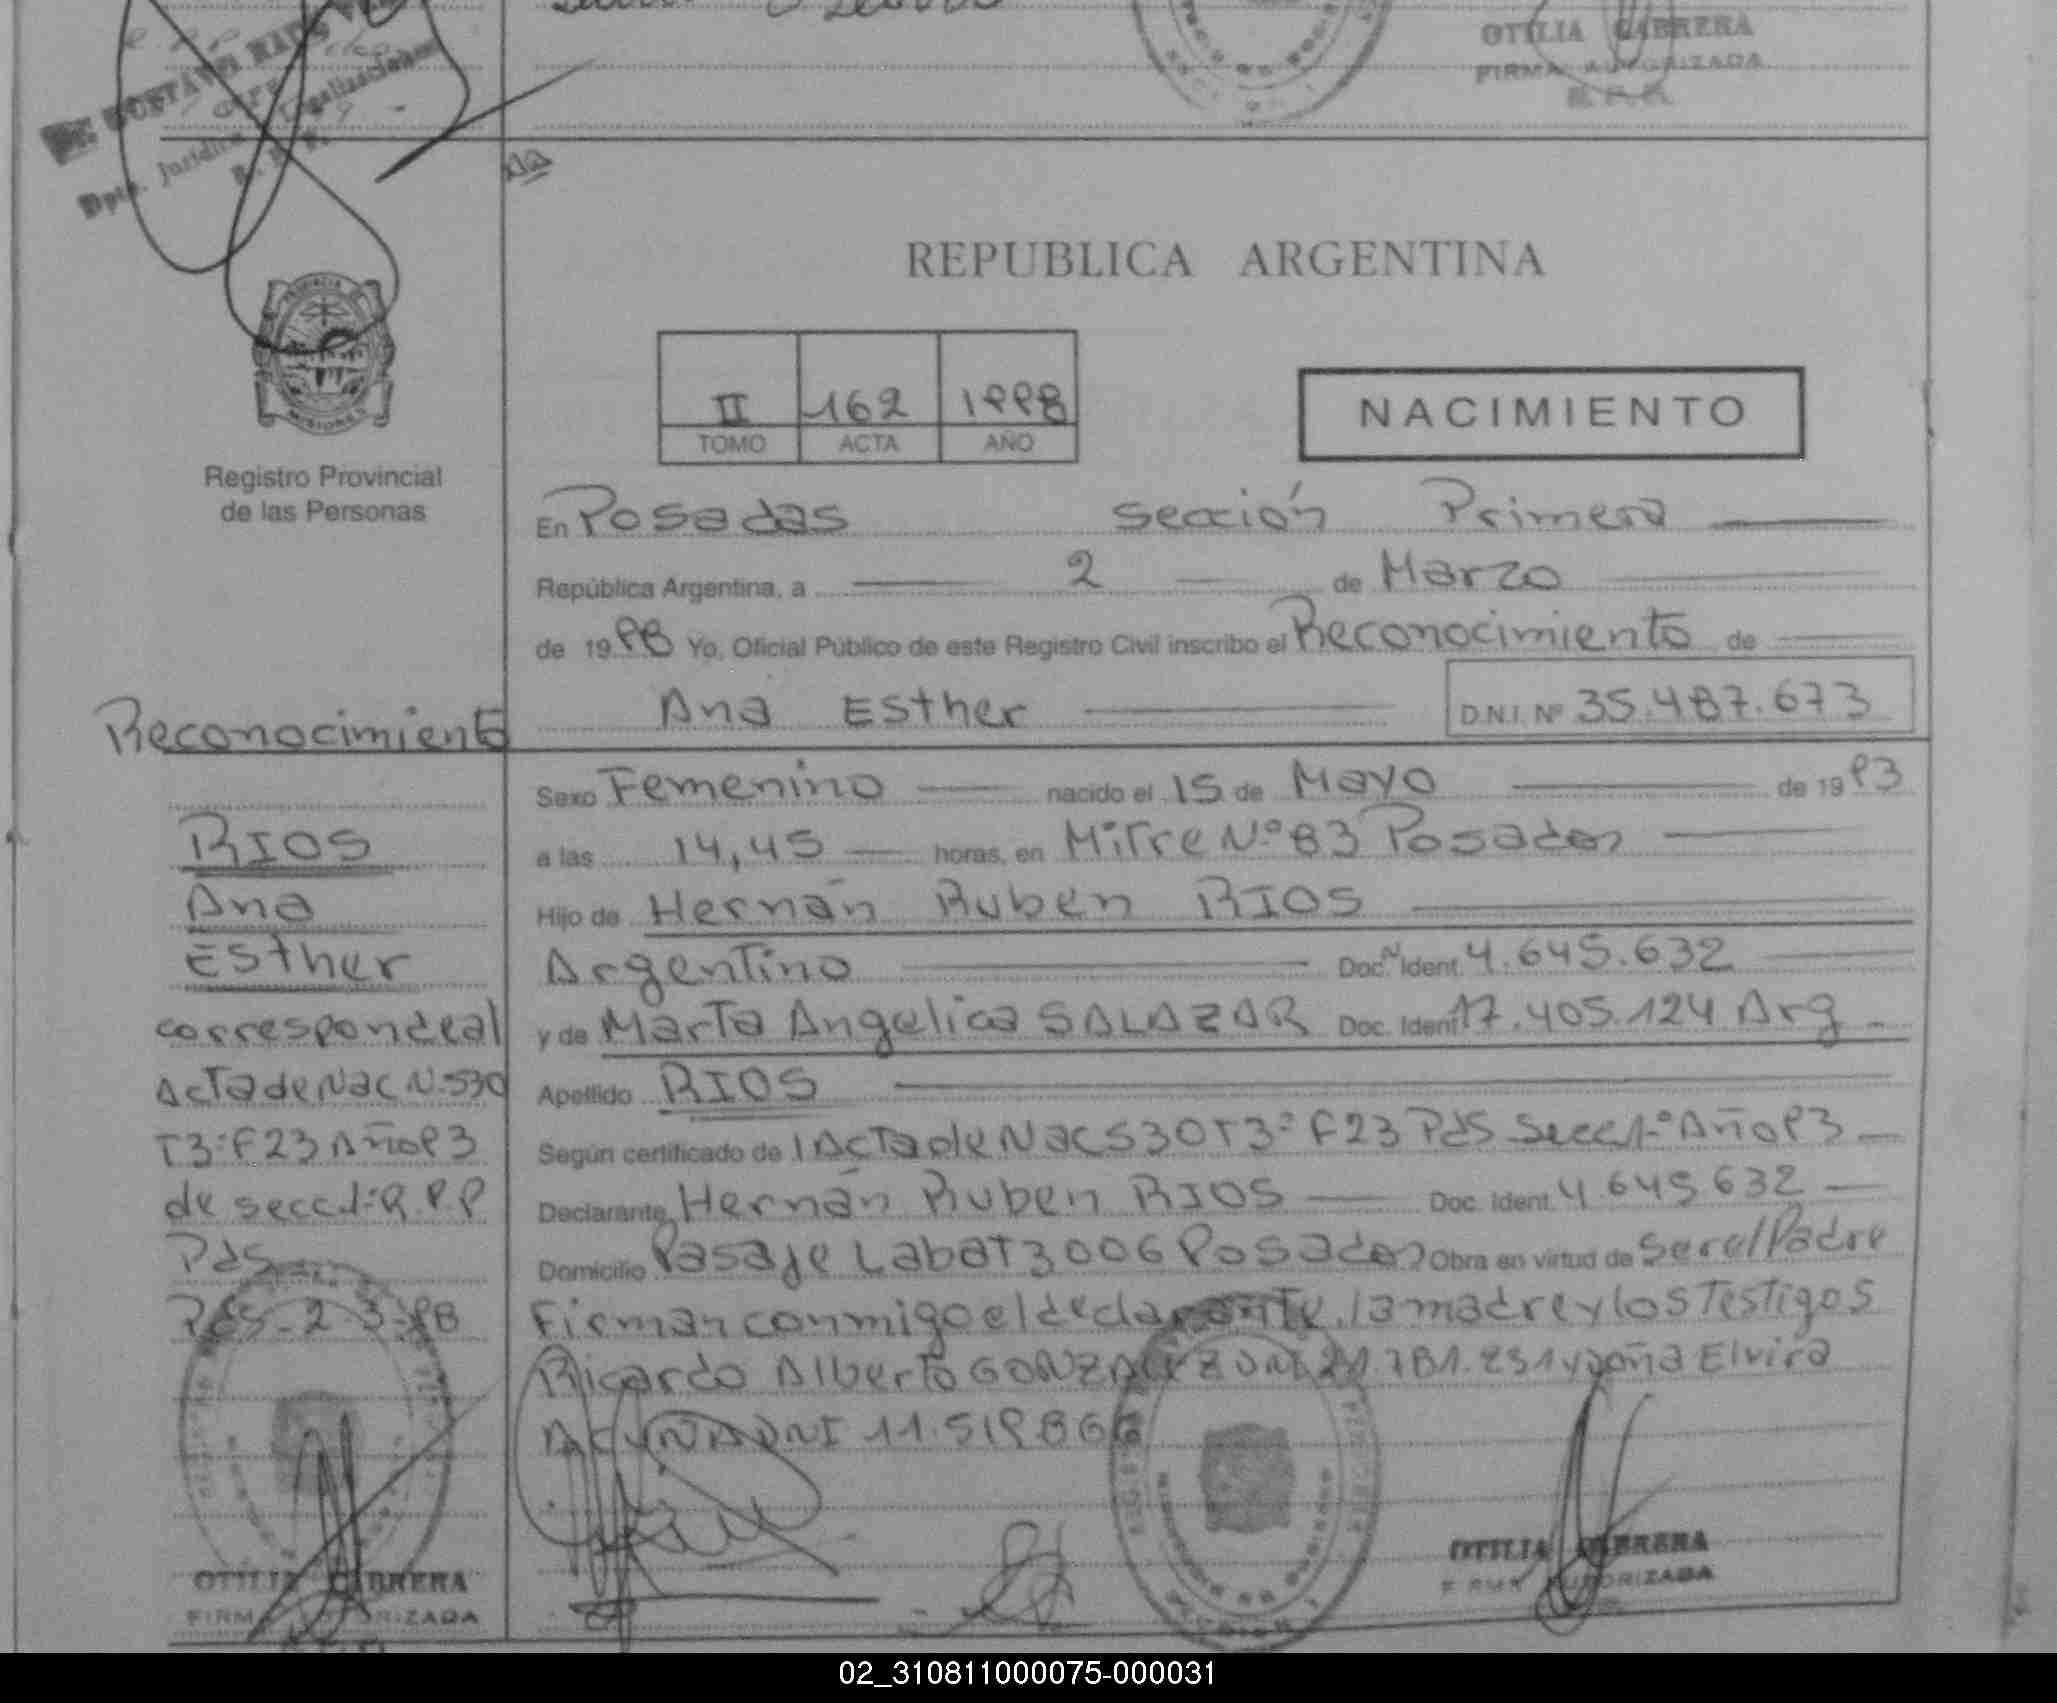 GUSTAVO RAUL
Dpto. Jurídico Legalizaciones
OTILIA CABRERA
FIRMA AUTORIZADA
R.P.P.
REPUBLICA ARGENTINA
PROVINCIA DE
MISIONES
II 162 1998
TOMO ACTA AÑO
NACIMIENTO
Registro Provincial
de las Personas
En Posadas sección Primera
República Argentina, a 2 de Marzo
de 1998 Yo, Oficial Público de este Registro Civil inscribo el Reconocimiento de
Ana Esther D.N.I. Nº 35.487.673
Reconocimiento
RIOS
Ana
Esther
corresponde al
Acta de Nac N.530
T3º F23 Año 93
de secc 1º R.P.P
Pds
Pds-2-3-98
OTILIA CABRERA
FIRMA AUTORIZADA
Sexo Femenino nacido el 15 de Mayo de 1993
a las 14,45 horas, en Mitre Nº 83 Posadas
Hijo de Hernán Ruben RIOS
Argentino Doc. Nº Ident. 4.645.632
y de Marta Angelica SALAZAR Doc. Ident. 17.405.124 Arg
Apellido RIOS
Según certificado de 1 Acta de Nac 530 T3º F23 Pds Secc 1º Año 93
Declarante Hernán Ruben RIOS Doc. Ident. 4 645 632
Domicilio Pasaje Labat 3006 Posadas Obra en virtud de ser el Padre
Firman conmigo el declarante, la madre y los Testigos
Ricardo Alberto GONZALEZ DNI 21.781.231 y doña Elvira
DNI 11.519866
OTILIA CABRERA
FIRMA AUTORIZADA
02_310811000075-000031